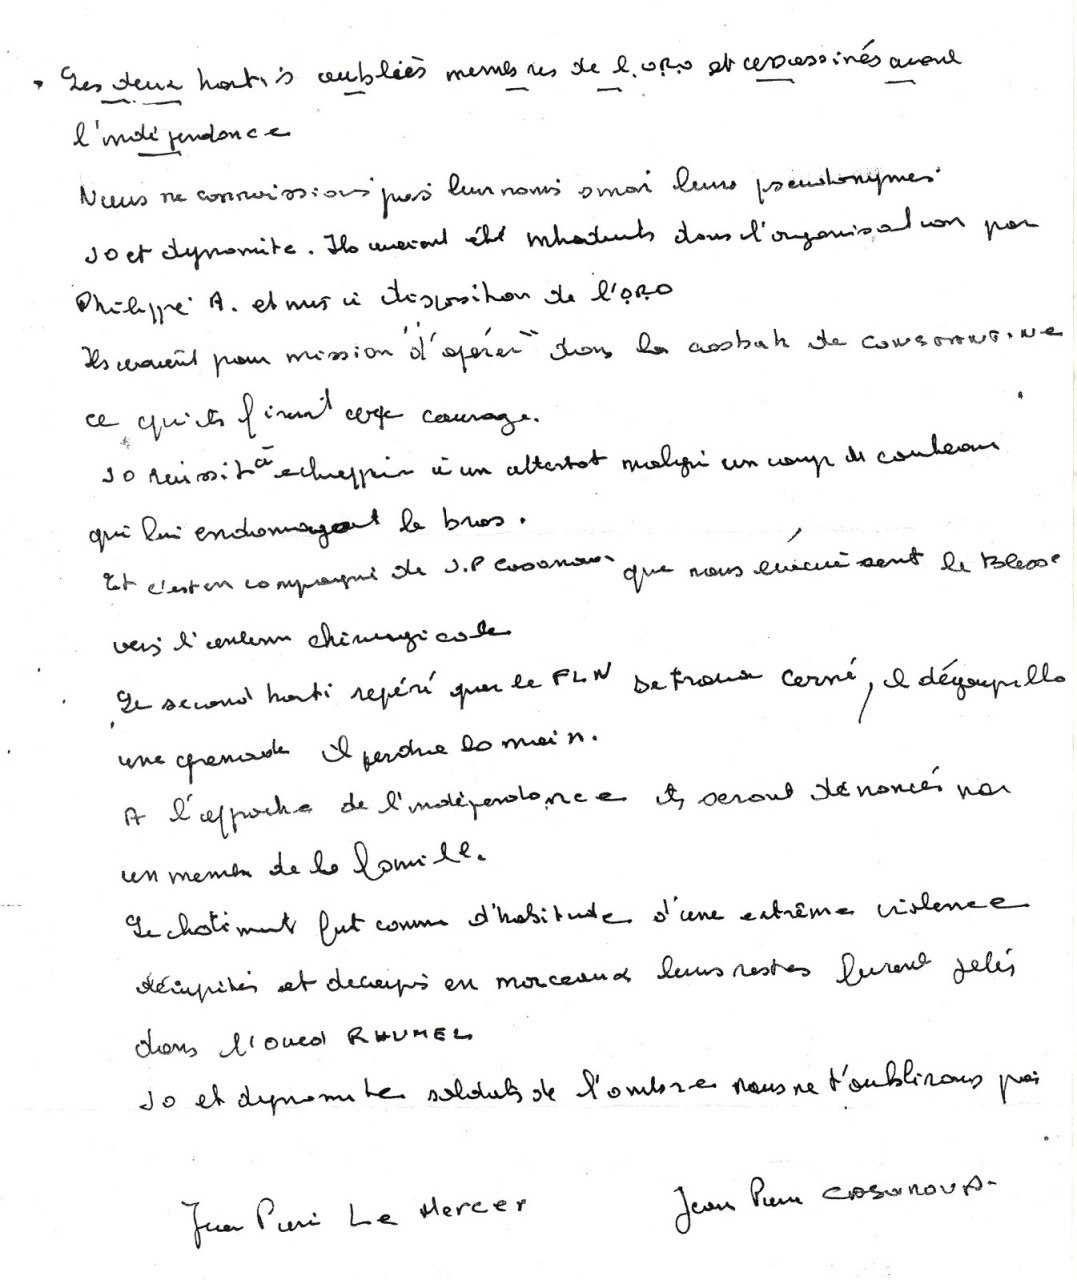 Les deux harkis oubliés membres de l'ORO et assassinés avant
l'indépendance
Nous ne connaissions pas leur noms mai leurs pseudonymes
JO et dynamite. Ils avaient été dans l'organisation par
Philippe A. et mis à disposition de l'ORO
Ils avaient pour mission "d'opérer" dans la casbah de CONSTANTINE
ce qu'ils firent avec courage.
JO réussit à echappir à un attentat malgré un coup de couteau
qui lui endomageat le bras.
Et c'est en compagni de J.P Casanova que nous évacuèrent le Blessé
vers l'antenn chirurgicale
Le second harki repéré par le FLN se trouva cerné, il dégoupilla
une grenade il perdra la main.
A l'approche de l'indépendance ils seront dénoncés par
un membre de la famille.
Le chatiment fut comme d'habitude d'une extrême violence
décapités et decoupés en morceaux leurs restes furent jetés
dans l'Oued RHUMEL
JO et dynamite soldats de l'ombre nous ne t'oublirons pas
Jean Pierre Le Mercer Jean Pierre CASANOVA